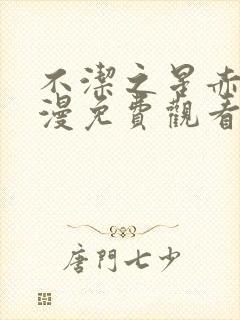 不潔之星赤
漫免費觀看
唐門七少